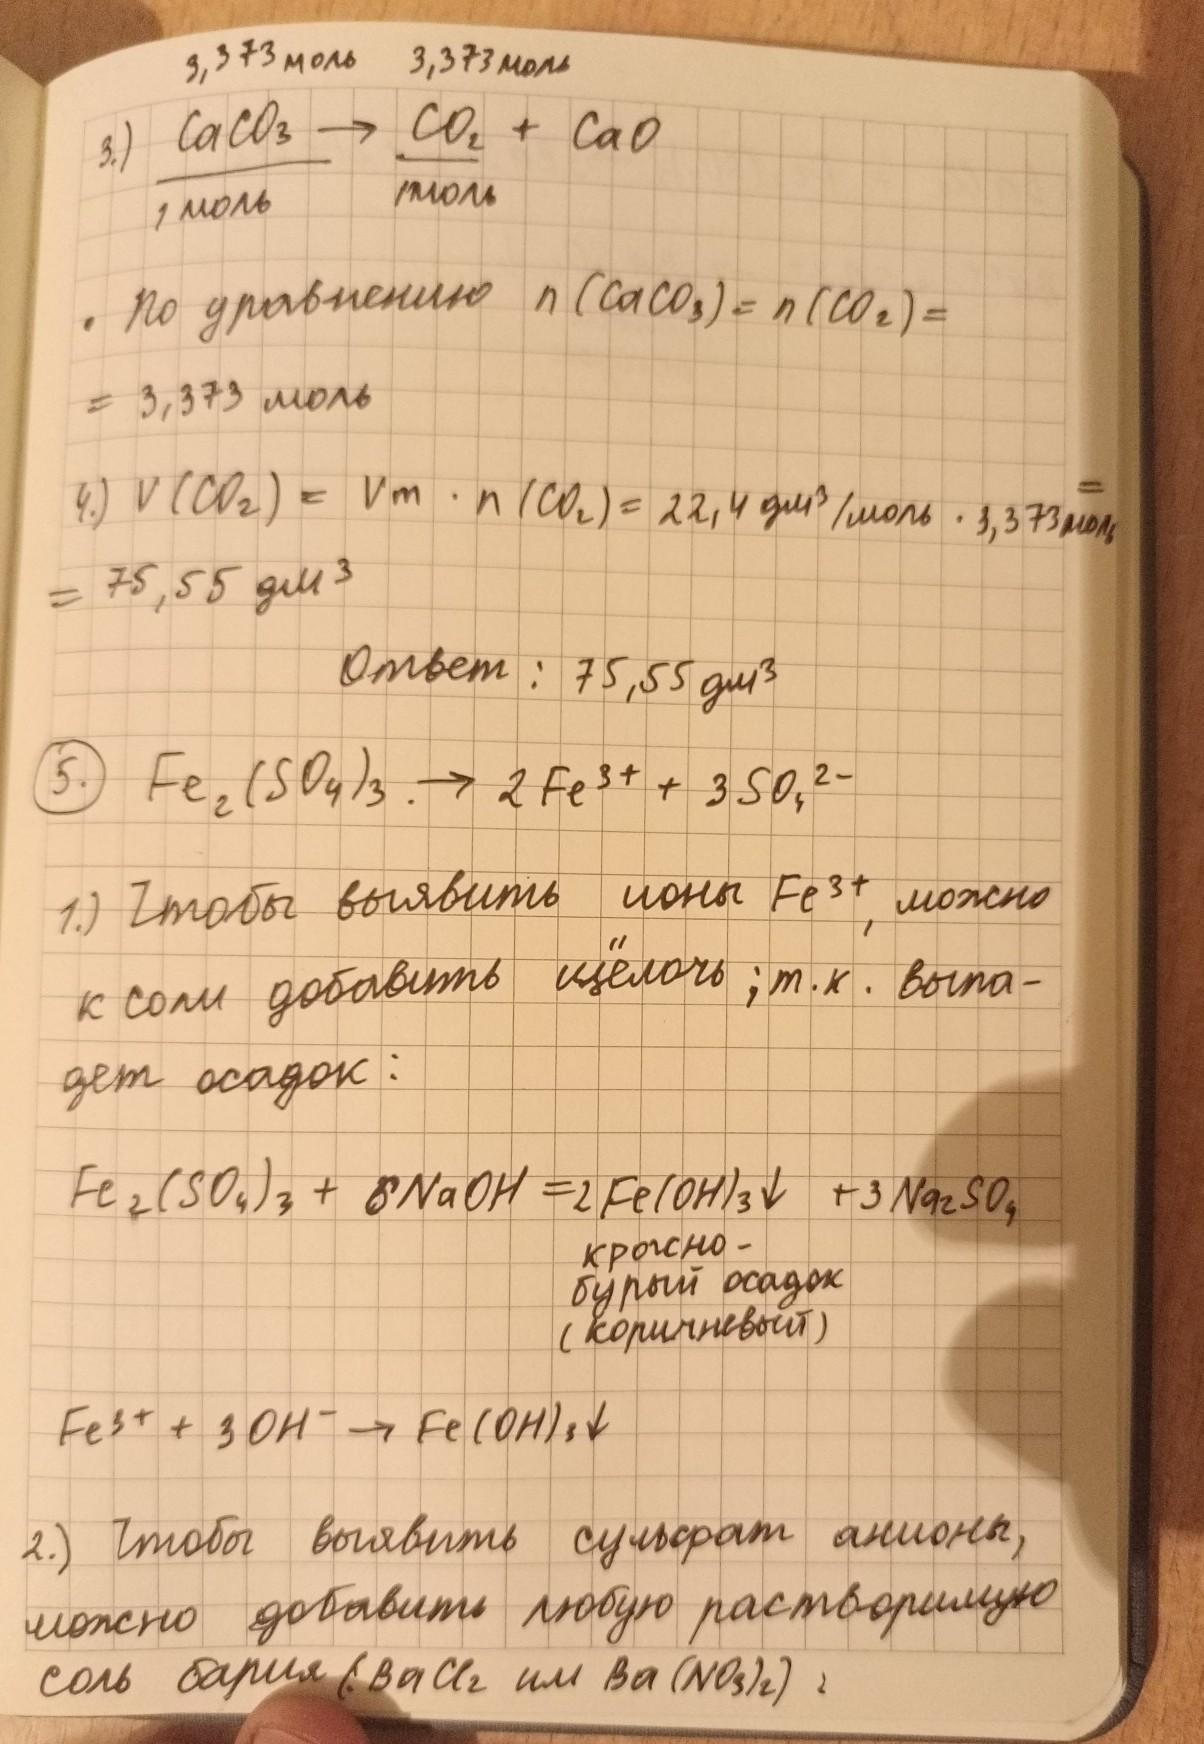 3,373 моль 3,373 моль
3.) CaCO₃ → CO₂ + CaO
1 моль 1 моль
• По уравнению n(CaCO₃) = n(CO₂) =
= 3,373 моль
4.) V(CO₂) = Vm · n(CO₂) = 22,4 дм³/моль · 3,373 моль =
= 75,55 дм³
Ответ: 75,55 дм³
5. Fe₂(SO₄)₃ → 2Fe³⁺ + 3SO₄²⁻
1.) Чтобы выявить ионы Fe³⁺, можно
к соли добавить щёлочь; т.к. выпа-
дет осадок:
Fe₂(SO₄)₃ + 6NaOH = 2Fe(OH)₃↓ + 3Na₂SO₄
красно-
бурый осадок
(коричневый)
Fe³⁺ + 3OH⁻ → Fe(OH)₃↓
2.) Чтобы выявить сульфат анионы,
можно добавить любую растворимую
соль бария (: BaCl₂ или Ba(NO₃)₂) :